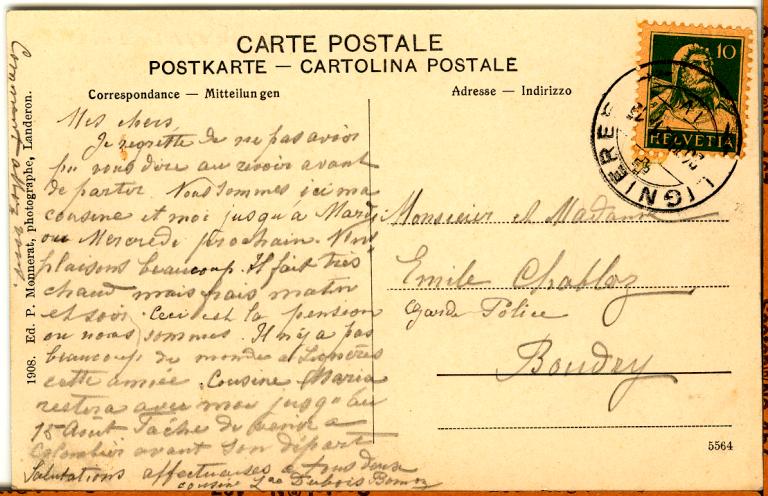 CARTE POSTALE
POSTKARTE — CARTOLINA POSTALE
Correspondance — Mitteilungen
Adresse — Indirizzo
10
HELVETIA
LIGNIÈRES
Mes chers,
Je regrette de ne pas avoir
pu vous dire au revoir avant
de partir. Nous sommes ici ma
cousine et moi jusqu'à Mardi
ou Mercredi prochain. Nous
plaisons beaucoup. Il fait très
chaud mais frais matin
et soir. Ceci est la pension
ou nous sommes. Il n'y a pas
beaucoup de monde à Lignières
cette année. Cousine Maria
restera avec moi jusqu'au
15 Août Tâche de venir a
Colombier avant son départ
Salutations affectueuses a tous deux
cousine Dubois
Comment allez vous
Monsieur et Madame
Emile Chabloz
Garde Police
Boudry
1908. Ed. P. Monnerat, photographe, Landeron.
5564